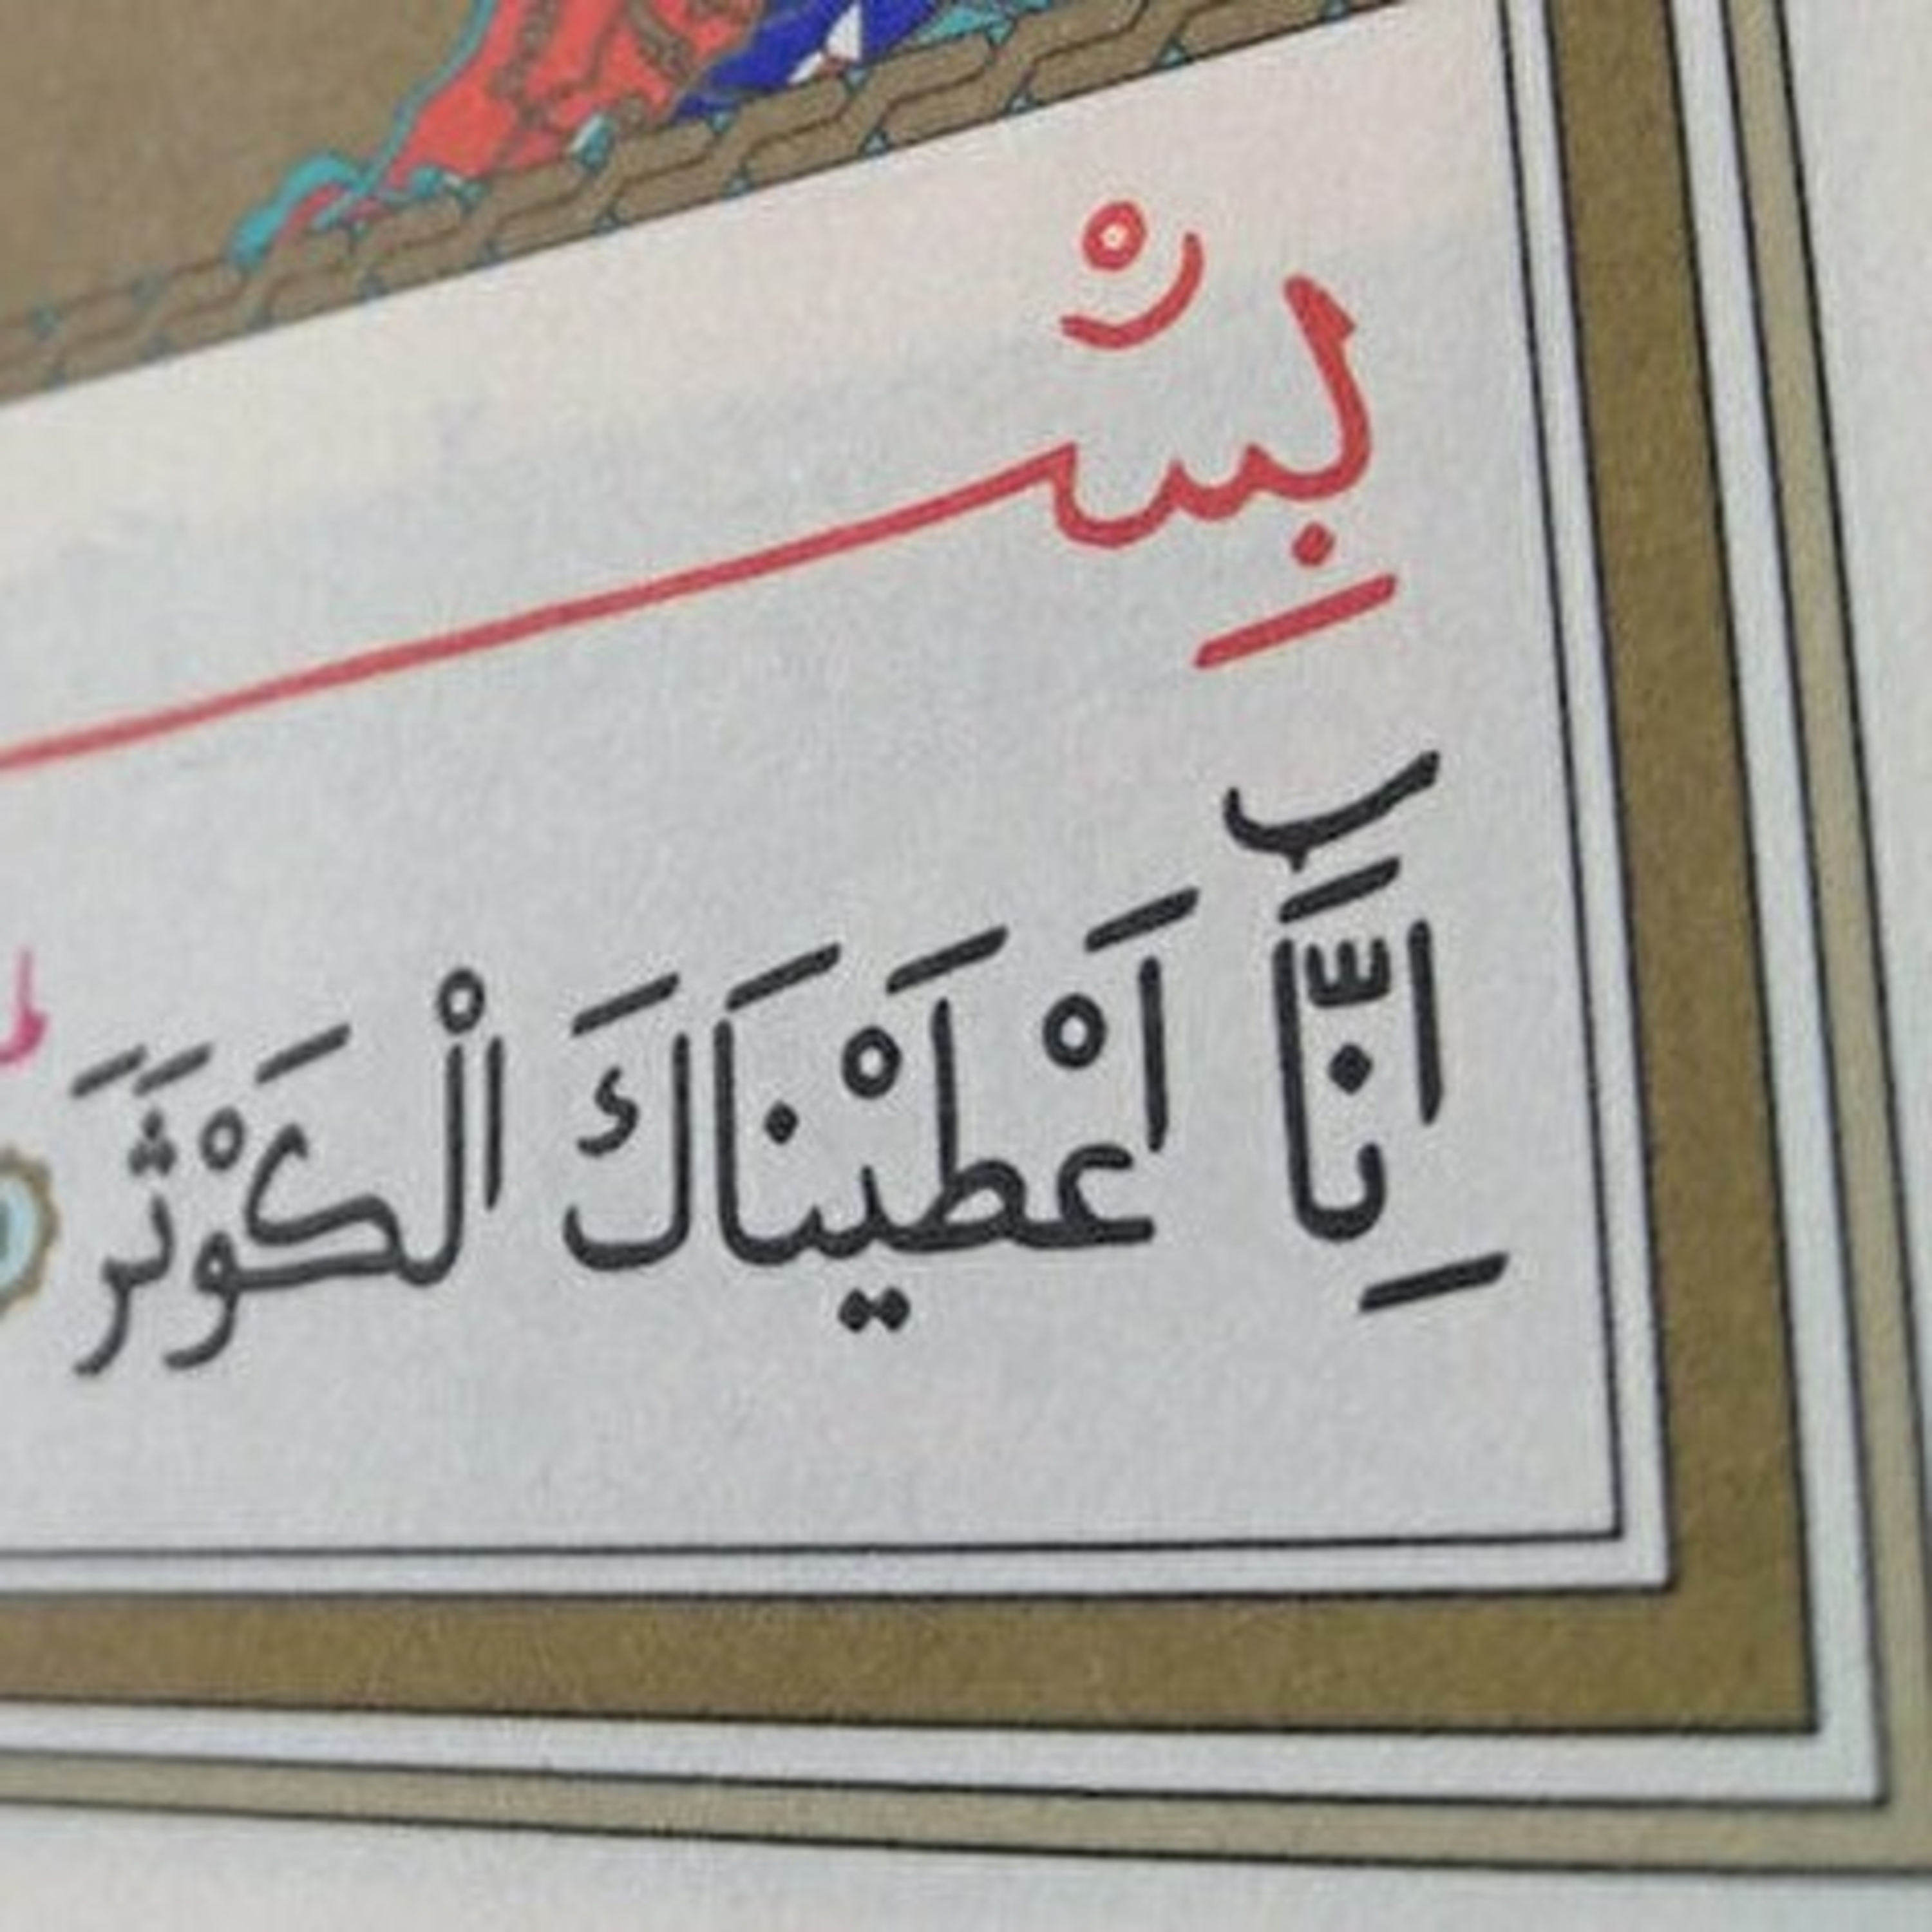 بِسْ
اِنَّٓا اَعْطَيْنَاكَ الْكَوْثَرَ ط